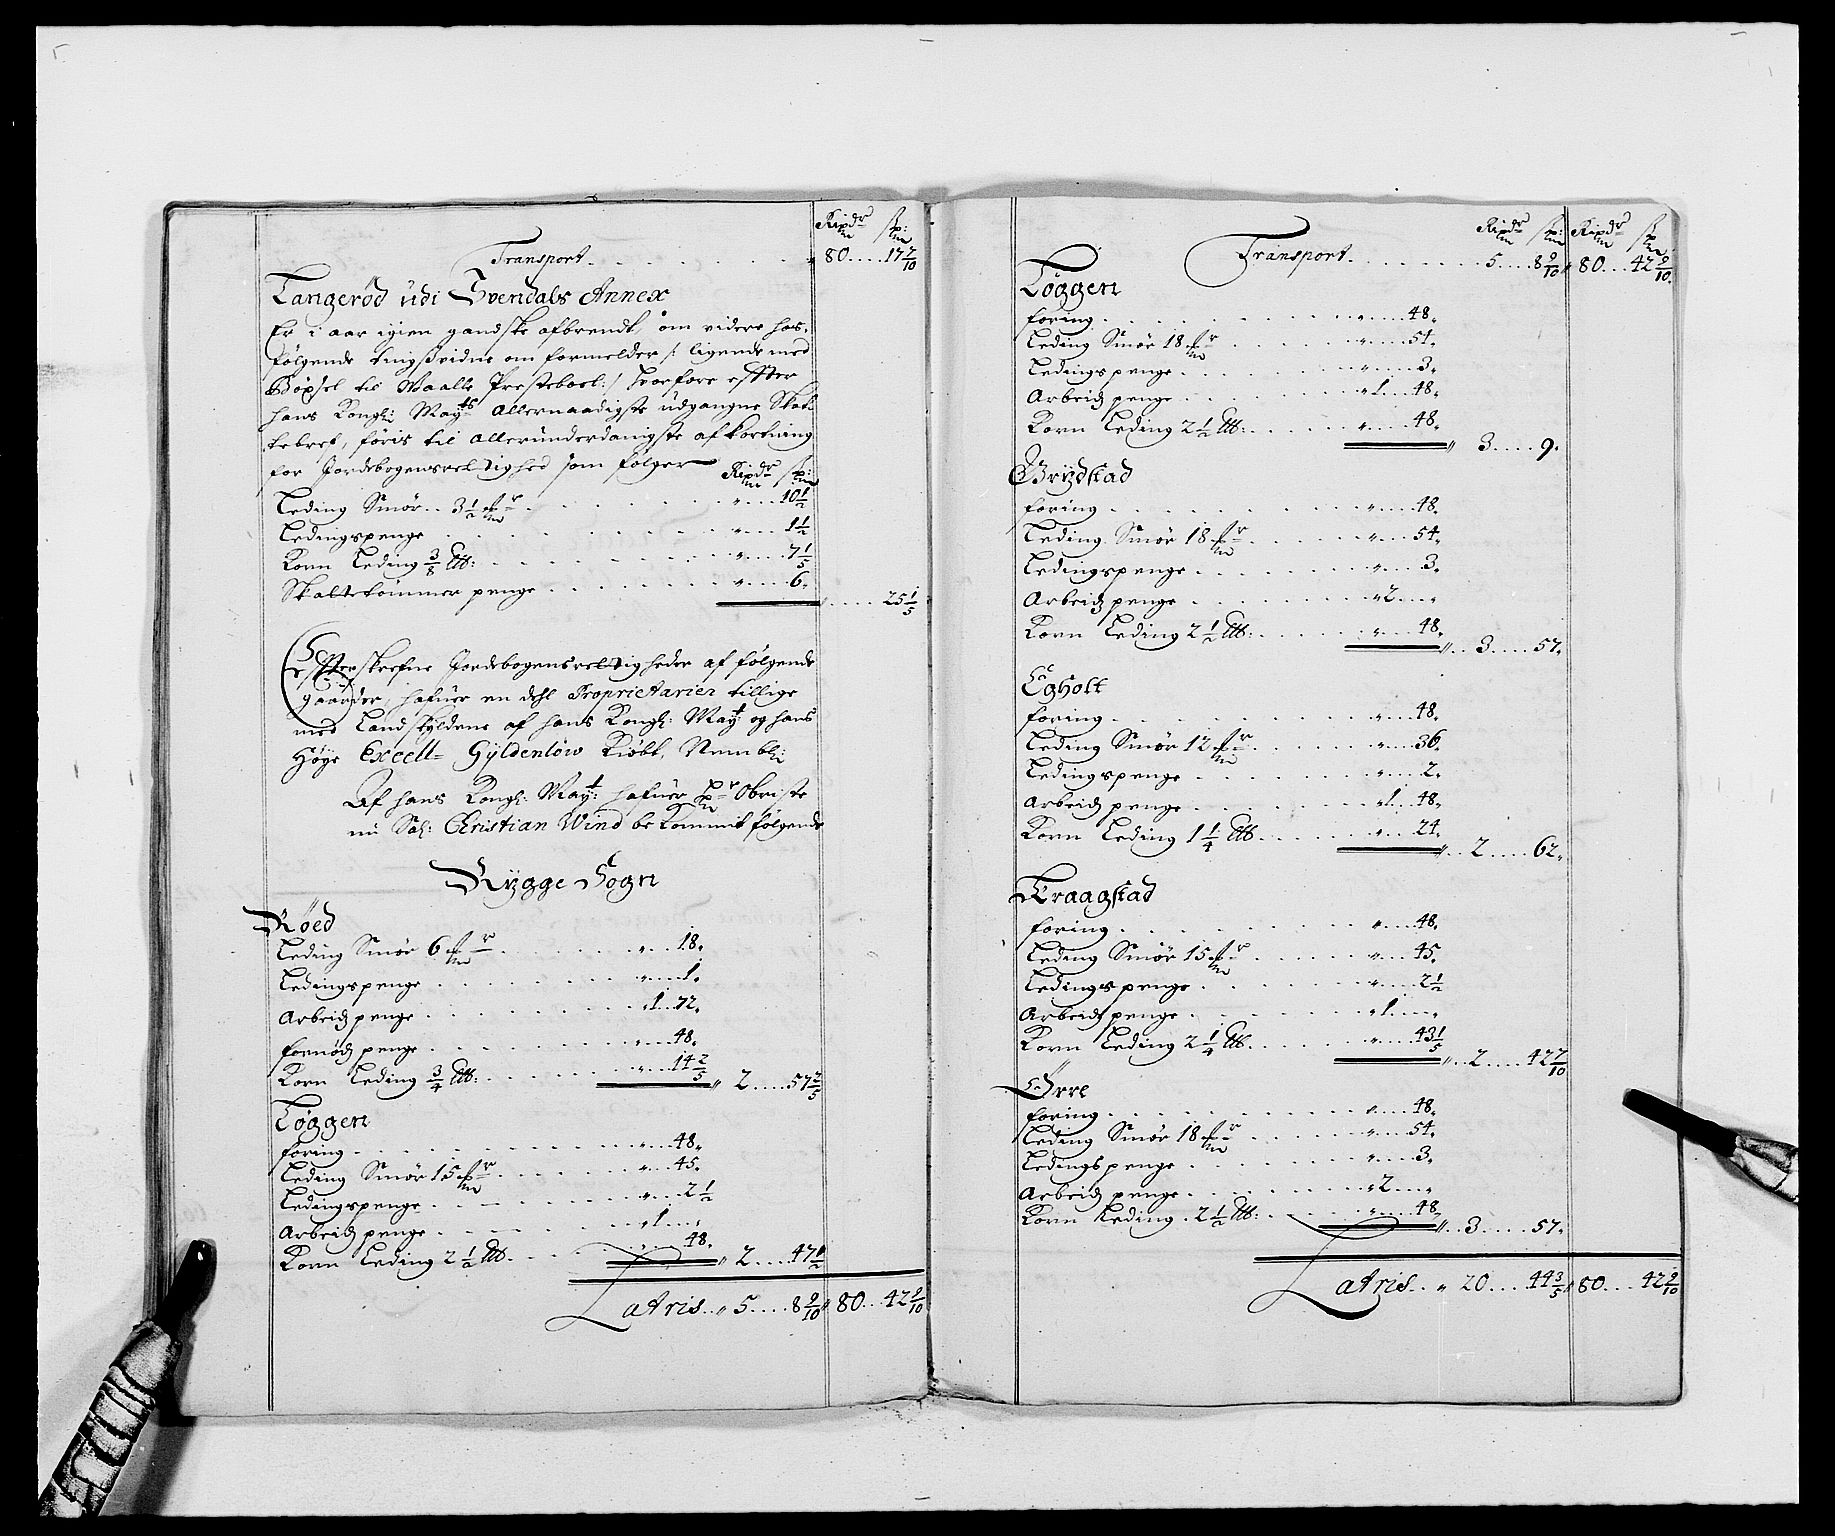 Ripdr sk:
Transport . . . . . . . . " 80 .... 17 7/10
Tangerød udi Svendals Annex
Er i aar igien gandske afbrendt, om videre hos-
følgende tingsvidne om formelder /: ligende med
Bøxsel til Waalle Presteboel: / hvorfore effter
hans Kongl: Mayts allernaadigste udgangne Skatte
bref, føris til allerunderdanigste afkortning
for Jordebogens rettighed som følger Ripdr sk:
Leding Smør .. 3 1/2 . . . . . . " .... 10 1/2
Ledingspenge . . . . . . . " .... 1 1/2
Korn Leding 3/8 . . . . . . . " .... 7 1/5
Skattekommer penge . . . . . . . " .... 6.
" .... 25 1/5
Effterskrefne Jordebogens rettigheder af følgende
gaarder, hafuer en dehl Proprietarier tillige
med Landskylden af hans Kongl: Mayt: og hans
Høye Excell= Gyldenløw Kiøbt, Nembl:
Af hans Kongl: Mayt: hafuer Hr Obriste
nu Sal: Christian Wind bekommit følgende
Rygge Sogn
Røed
Leding Smør 6 . . . . . . " ... 18.
Ledingspenge . . . . . . . " .... 1.
Arbeidspenge . . . . . . . " 1 .. 72.
fornøds penge . . . . . . . " .... 48.
Korn Leding 3/4 . . . . . . " .... 14 2/5 " 2 .... 57 2/5
Løggen
foring . . . . . . . . . " .... 48.
Leding Smør 15 . . . . . " .... 45.
Ledingspenge . . . . . . . " .... 2 1/2
Arbeidspenge . . . . . . . " 1 .... "
Korn Leding 2 1/2 . . . . . . " .... 48. " 2 .... 47 1/2
Latris .. " 5 .... 8 9/10 " 80 ... 42 9/10
Ripdr sk: Ripdr sk
Transport . . . . . . . 5 .... 8 9/10 " 80 ... 42 9/10.
Løggen
foring . . . . . . . . . " .... 48.
Leding Smør 18 . . . . . . " .... 54.
Ledingspenge . . . . . . . " .... 3.
Arbeids penge . . . . . . . " 1 ... 48.
Korn Leding 2 1/2 . . . . . " .... 48. " 3 .... 9.
Brydstad
foring . . . . . . . . . " .... 48.
Leding Smør 18 . . . . . . " .... 54.
Ledingspenge . . . . . . . " .... 3.
Arbeids penge . . . . . . . " 2 .... "
Korn Leding 2 1/2 . . . . . " .... 48. " .. 3 .... 57.
Egholt
foring . . . . . . . . . " .... 48.
Leding Smør 12 . . . . . . " .... 36.
Ledingspenge . . . . . . . " .... 2.
Arbeids penge . . . . . . . " 1 ... 48.
Korn Leding 1 1/4 . . . . . . " .... 24. " .. 2 .... 62.
Kraagstad
foring . . . . . . . . . " .... 48.
Leding Smør 15 . . . . . . " .... 45.
Ledingspenge . . . . . . . " .... 2 1/2
Arbeids penge . . . . . . . " 1 .... "
Korn Leding 2 1/4 . . . . . " .... 43 1/5 " .. 2 .... 42 7/10
Ørre
foring . . . . . . . . . " .... 48.
Leding Smør 18 . . . . . . " .... 54.
Ledingspenge . . . . . . . " .... 3.
Arbeids penge . . . . . . . " 2 .... "
Korn Leding . 2 1/2 . . . . . " .... 48. " .. 3 .... 57.
Latris .. " 20 .... 44 3/5 " 80 .... 42 9/10